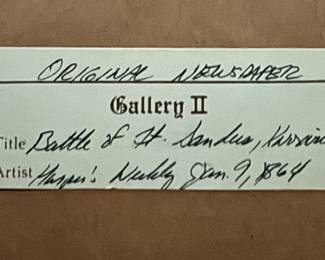 ORIGINAL NEWSPAPER
Gallery II
Title Battle of Ft. Sandus,
Artist Harper's Weekly Jan. 9, 1864